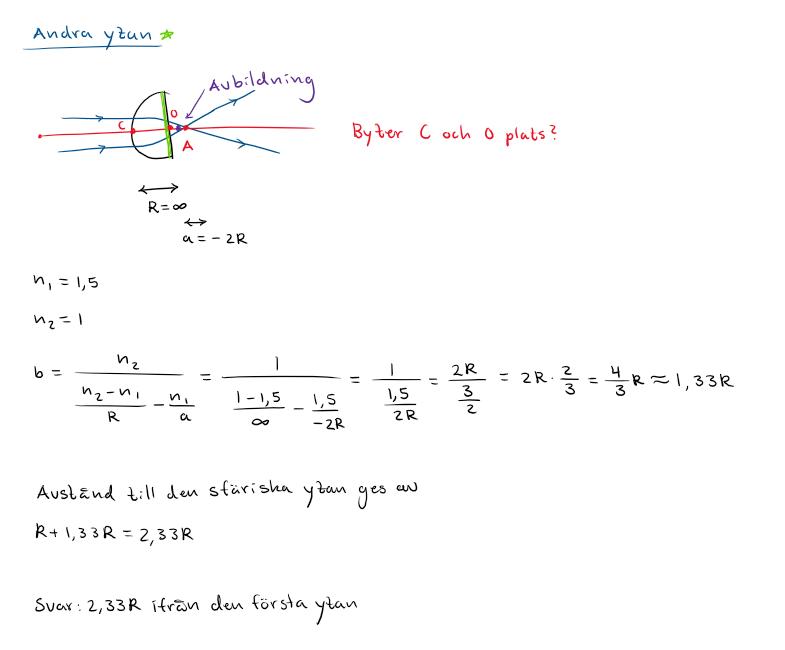 Andra ytan
Avbildning
C O A
Byter C och O plats?
R = ∞
a = - 2R
n₁ = 1,5
n₂ = 1
b = n₂ / ((n₂ - n₁)/R - n₁/a) = 1 / ((1 - 1,5)/∞ - 1,5/-2R) = 1 / (1,5/2R) = 2R / (3/2) = 2R · 2/3 = 4/3 R ≈ 1,33R
Avstånd till den sfäriska ytan ges av
R + 1,33R = 2,33R
Svar: 2,33R ifrån den första ytan